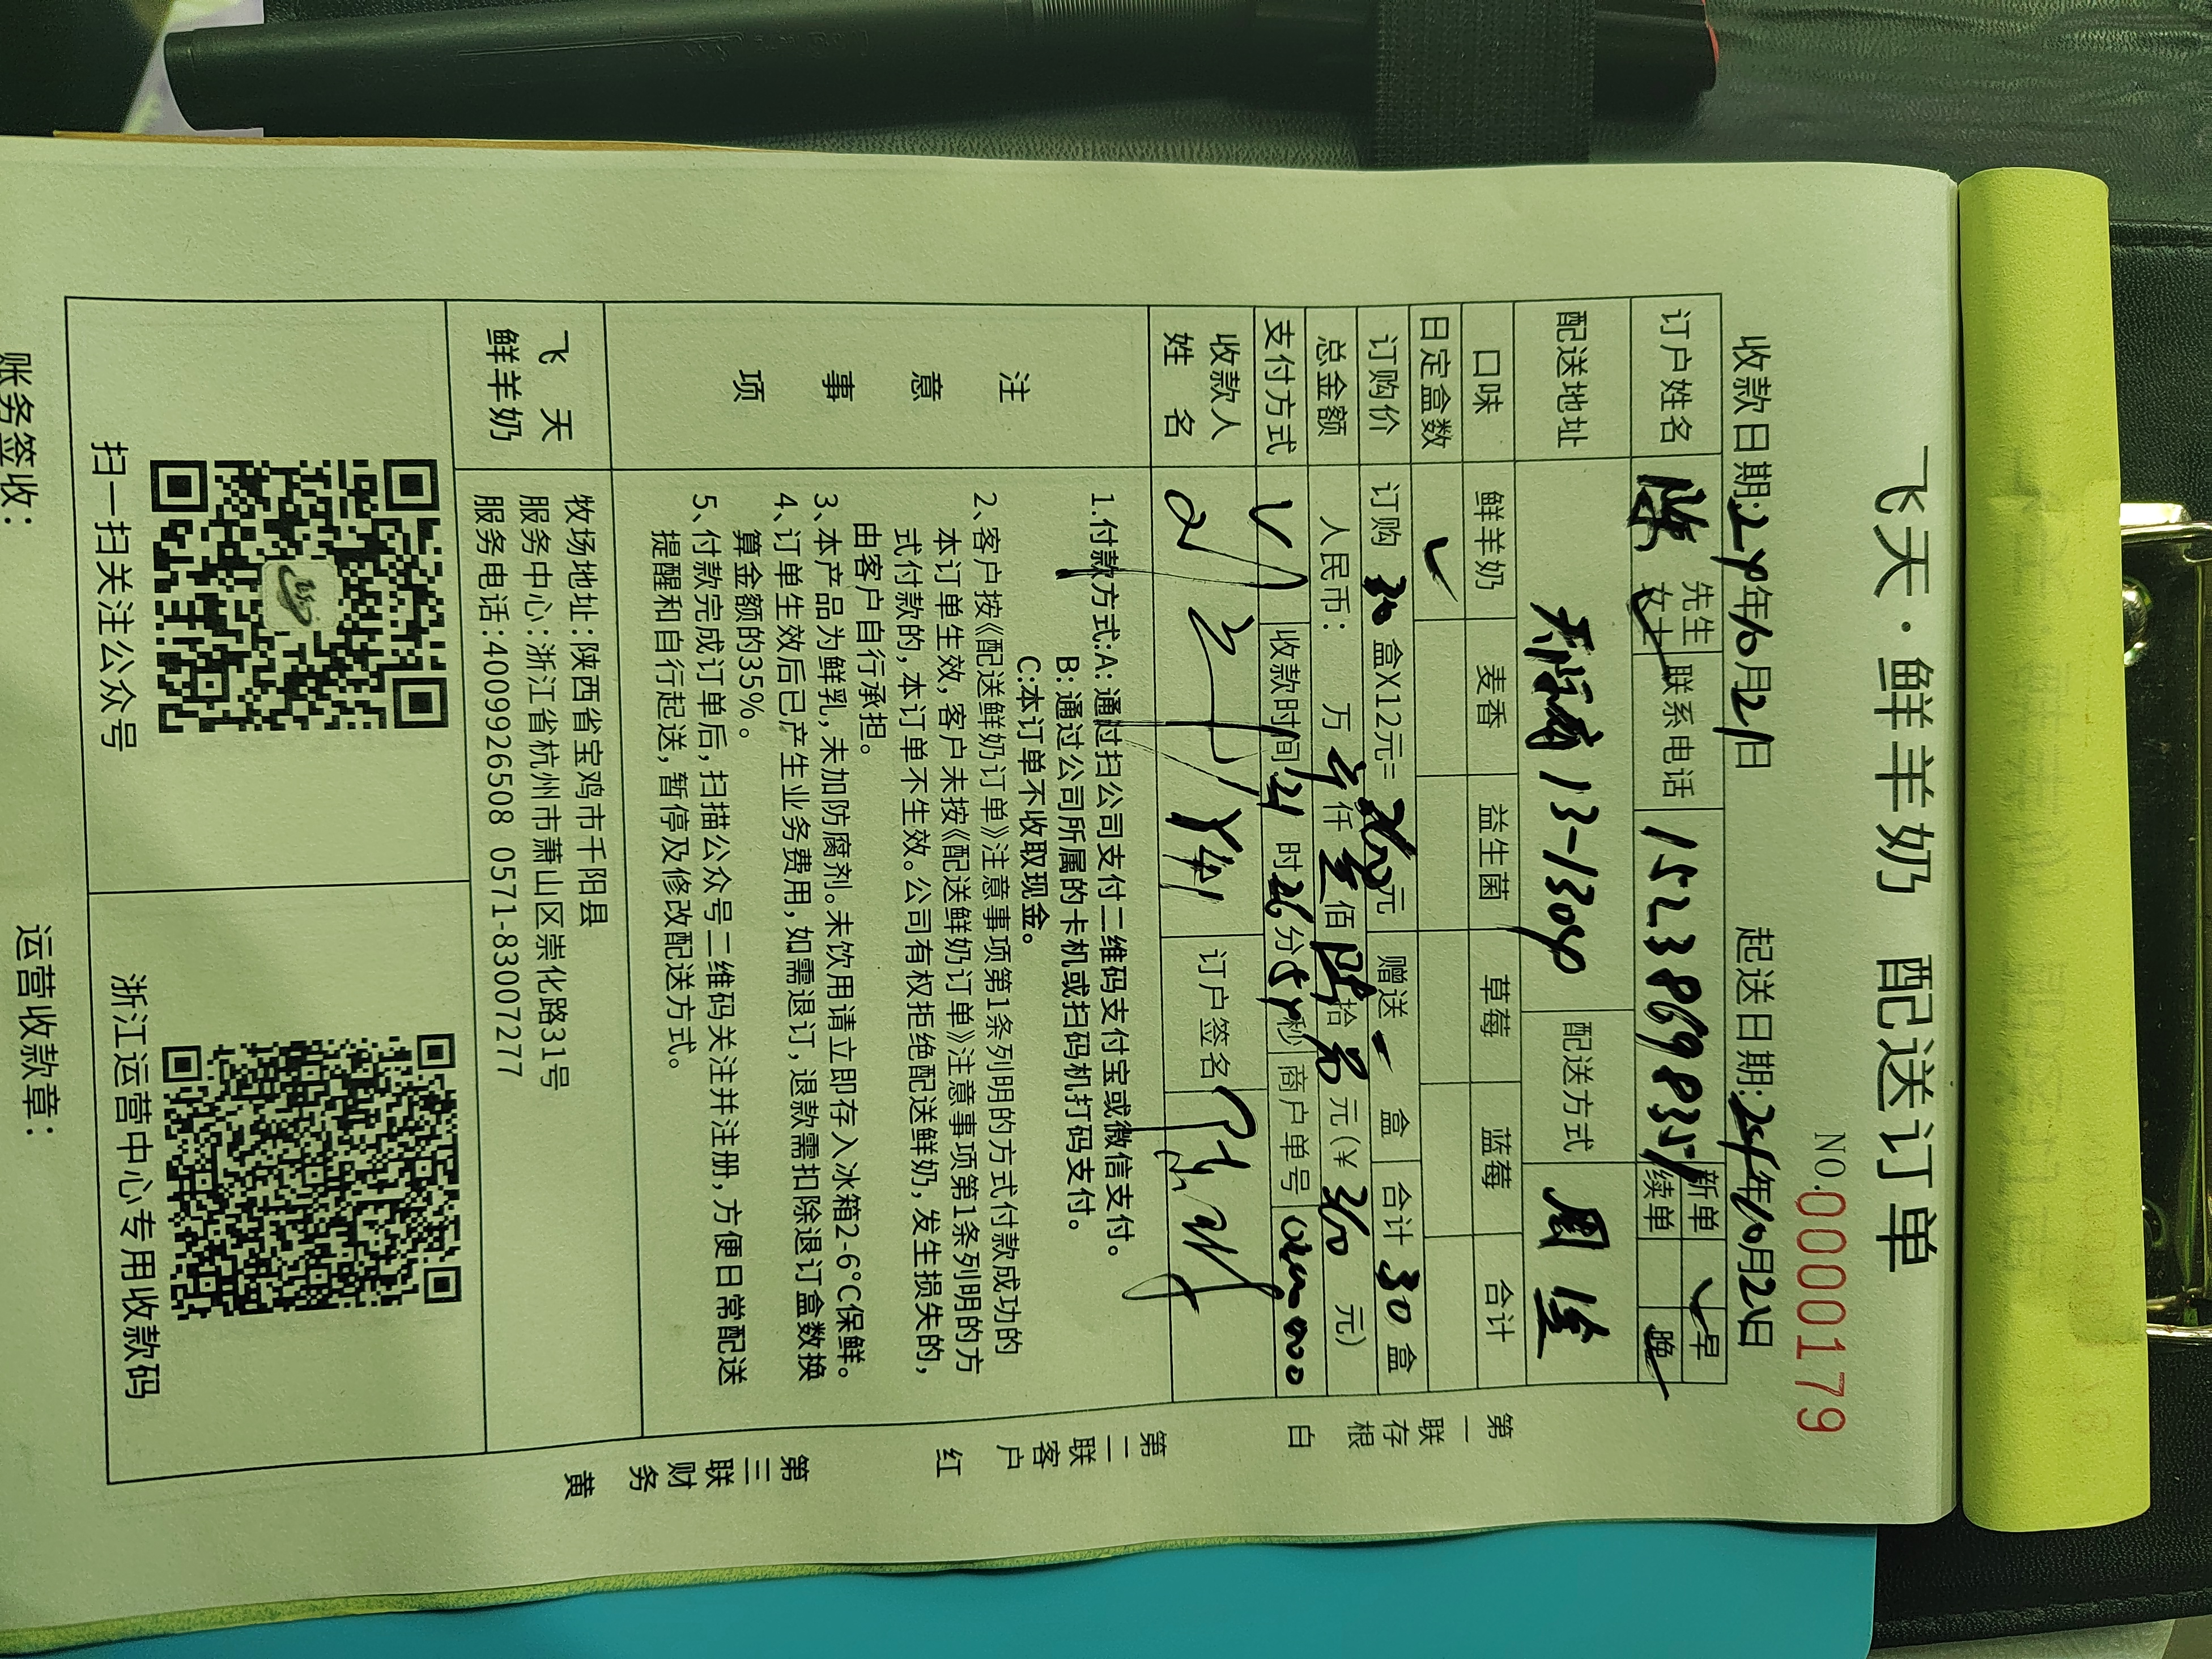 飞天·鲜羊奶 配送订单
NO.0000179
收款日期:24年10月21日 起送日期:24年10月22日
订户姓名 陈 先生 女士 联系电话 15238698351 新单 续单 早 晚
配送地址 13-1304 配送方式 周送
口味 鲜羊奶 麦香 益生菌 草莓 蓝莓 合计
日定盒数 ✓
订购价 订购 30 盒X12元= 360 元 赠送 盒 合计 30 盒
总金额 人民币: 万 零 仟 叁 佰 陆 拾 元(¥ 360 元)
支付方式 V 收款时间 21 时 26 分 秒 商户单号
收款人姓名 订户签名
注意事项
1.付款方式:A: 通过扫公司支付二维码支付宝或微信支付。
B: 通过公司所属的卡机或扫码机打码支付。
C:本订单不收取现金。
2、客户按《配送鲜奶订单》注意事项第1条列明的方式付款成功的
本订单生效,客户未按《配送鲜奶订单》注意事项第1条列明的方
式付款的,本订单不生效。公司有权拒绝配送鲜奶,发生损失的,
由客户自行承担。
3、本产品为鲜乳,未加防腐剂。未饮用请立即存入冰箱2-6°C保鲜。
4、订单生效后已产生业务费用,如需退订,退款需扣除退订盒数换
算金额的35%。
5、付款完成订单后,扫描公众号二维码关注并注册,方便日常配送
提醒和自行起送,暂停及修改配送方式。
飞天鲜羊奶
牧场地址:陕西省宝鸡市千阳县
服务中心:浙江省杭州市萧山区崇化路31号
服务电话:4009926508 0571-83007277
扫一扫关注公众号 浙江运营中心专用收款码
账务签收: 运营收款章:
第一联存根 白
第二联客户 红
第三联财务 黄